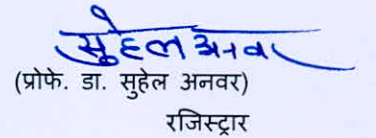 सुहेल अनवर
(प्रोफे. डा. सुहेल अनवर)
रजिस्ट्रार